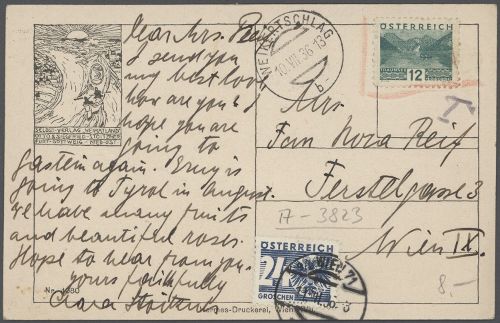 Dear Mrs.
I send you
my best love
how are you
hope you are
going to
gastein again. Erny is
going to Tyrol in August.
We have many fruits
and beautiful roses.
Hope to hear from you.
yours faithfully
No. 1280
WEIKERTSCHLAG
10.VII.36 13
b
ÖSTERREICH
12
T
Mrs
Nora Reif
Ferstelgasse 3
Wien IX.
A-3823
ÖSTERREICH
24
GROSCHEN
WIEN 71
8.-
Druckerei, Wien